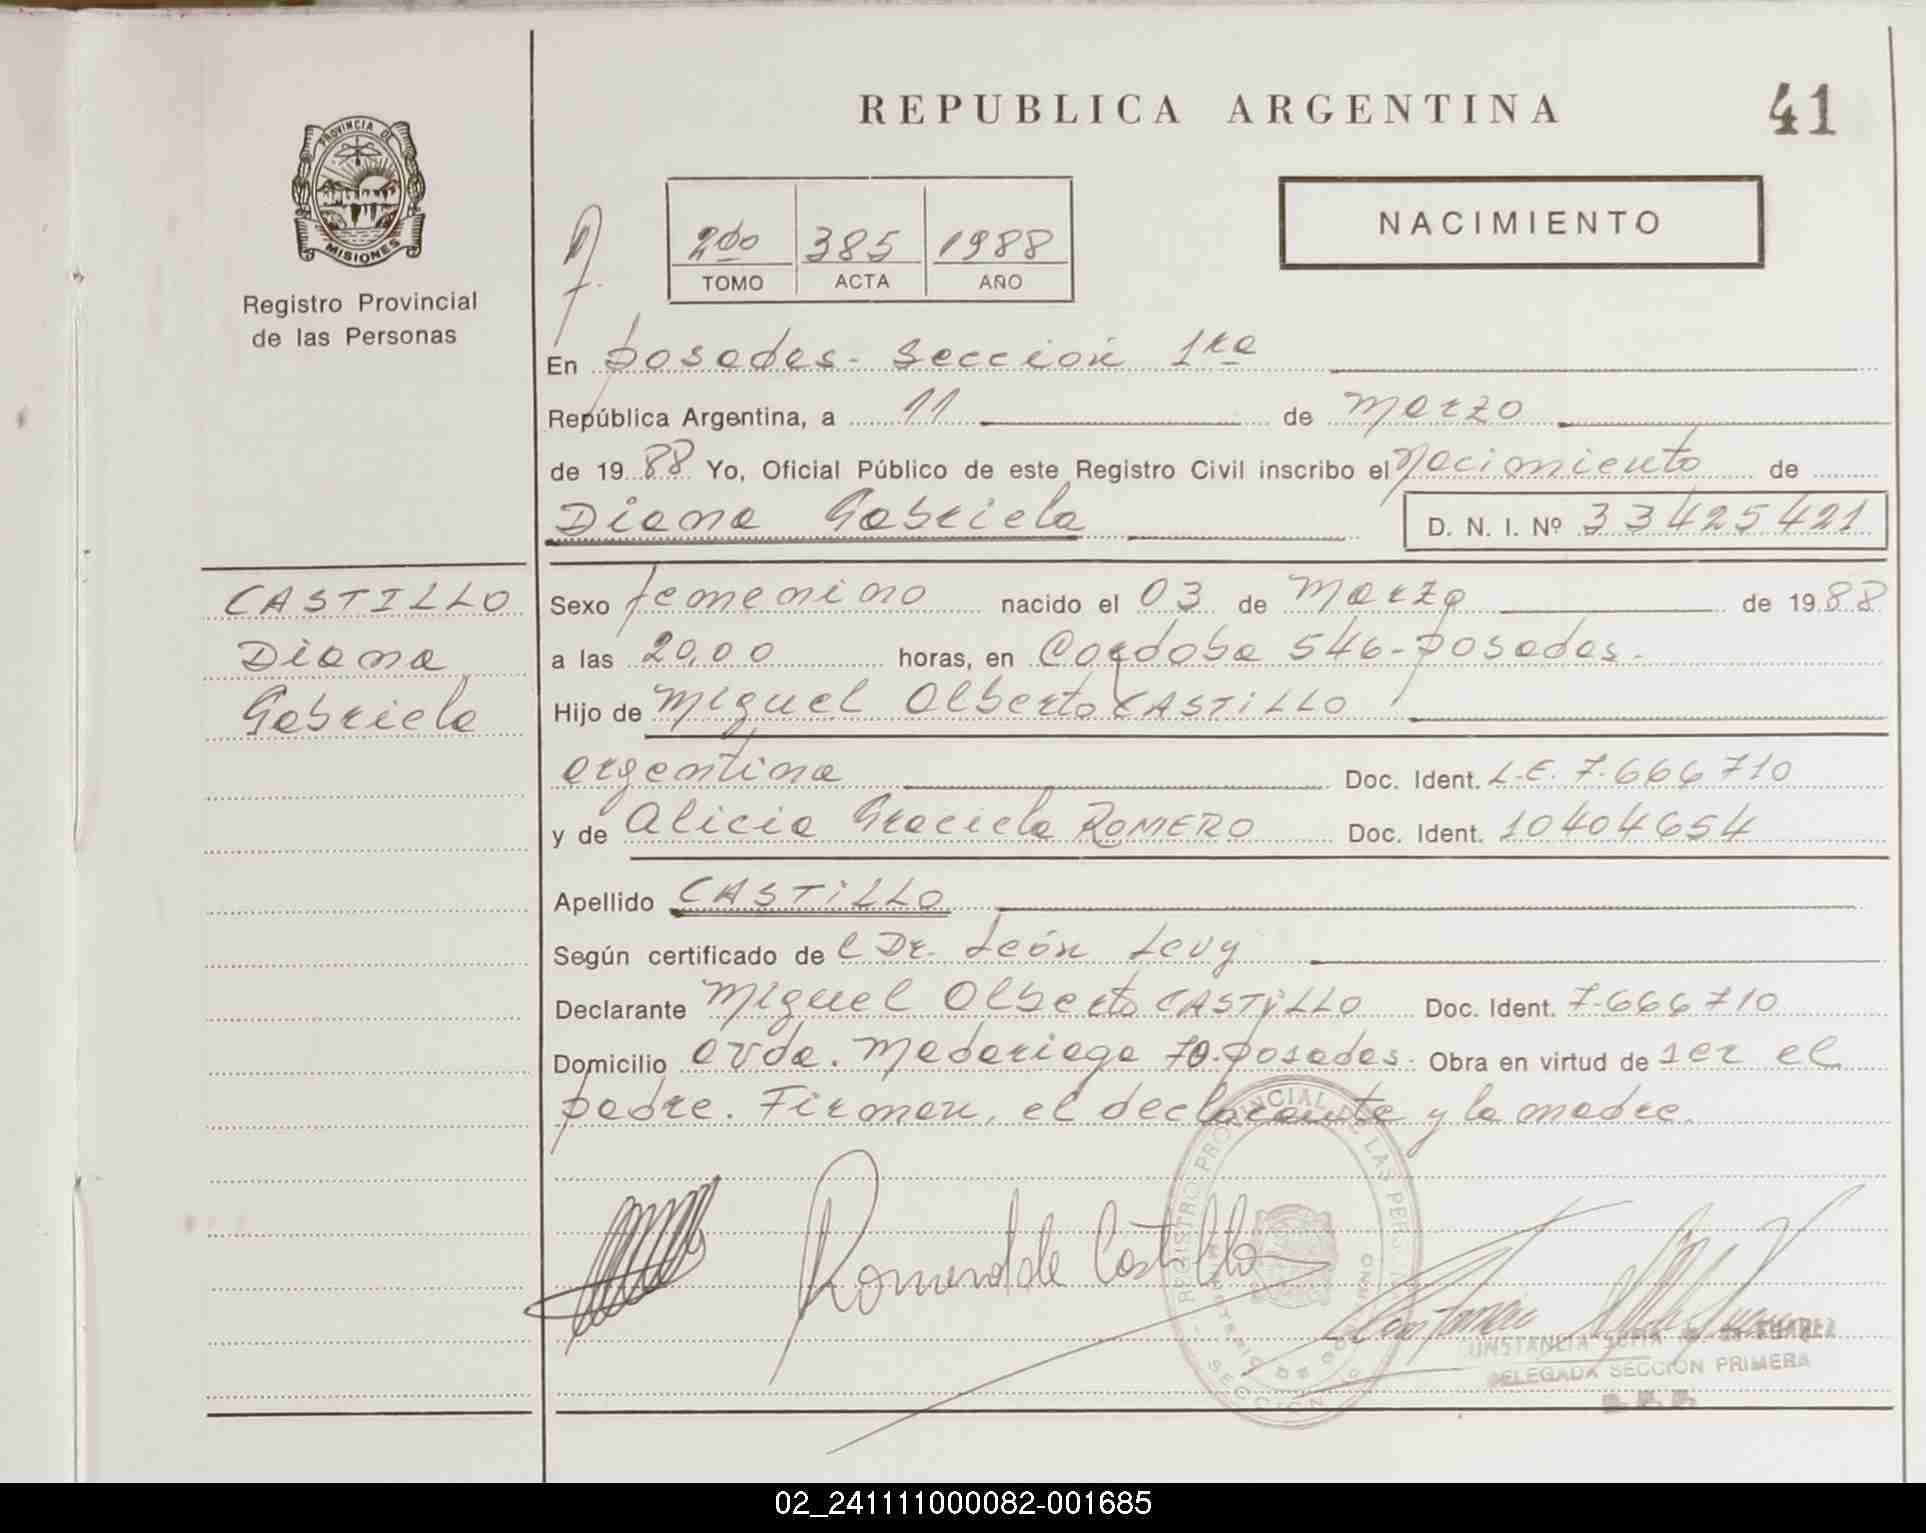 REPUBLICA ARGENTINA
41
PROVINCIA DE MISIONES
Registro Provincial
de las Personas
2do 385 1988
TOMO ACTA AÑO
NACIMIENTO
En Posadas - Sección 1ra
República Argentina, a 11 de Marzo
de 1988 Yo, Oficial Público de este Registro Civil inscribo el Nacimiento de
Diana Gabriela D. N. I. Nº 33425421
CASTILLO
Diana
Gabriela
Sexo femenino nacido el 03 de Marzo de 1988
a las 20,00 horas, en Cordoba 546 - Posadas.
Hijo de Miguel Alberto CASTILLO
argentina Doc. Ident. L.E. 7.666710
y de Alicia Graciela ROMERO Doc. Ident. 10404654
Apellido CASTILLO
Según certificado de l Dr. León Levy
Declarante Miguel Alberto CASTILLO Doc. Ident. 7.666710
Domicilio avda. Madariaga 70 - Posadas. Obra en virtud de ser el
padre. Firman, el declarante y la madre.
Romero de Castillo
REGISTRO PROVINCIAL DE LAS PERS
MINISTERIO DE GOBIERNO
SECCION
SOFIA
DELEGADA SECCION PRIMERA
02_241111000082-001685